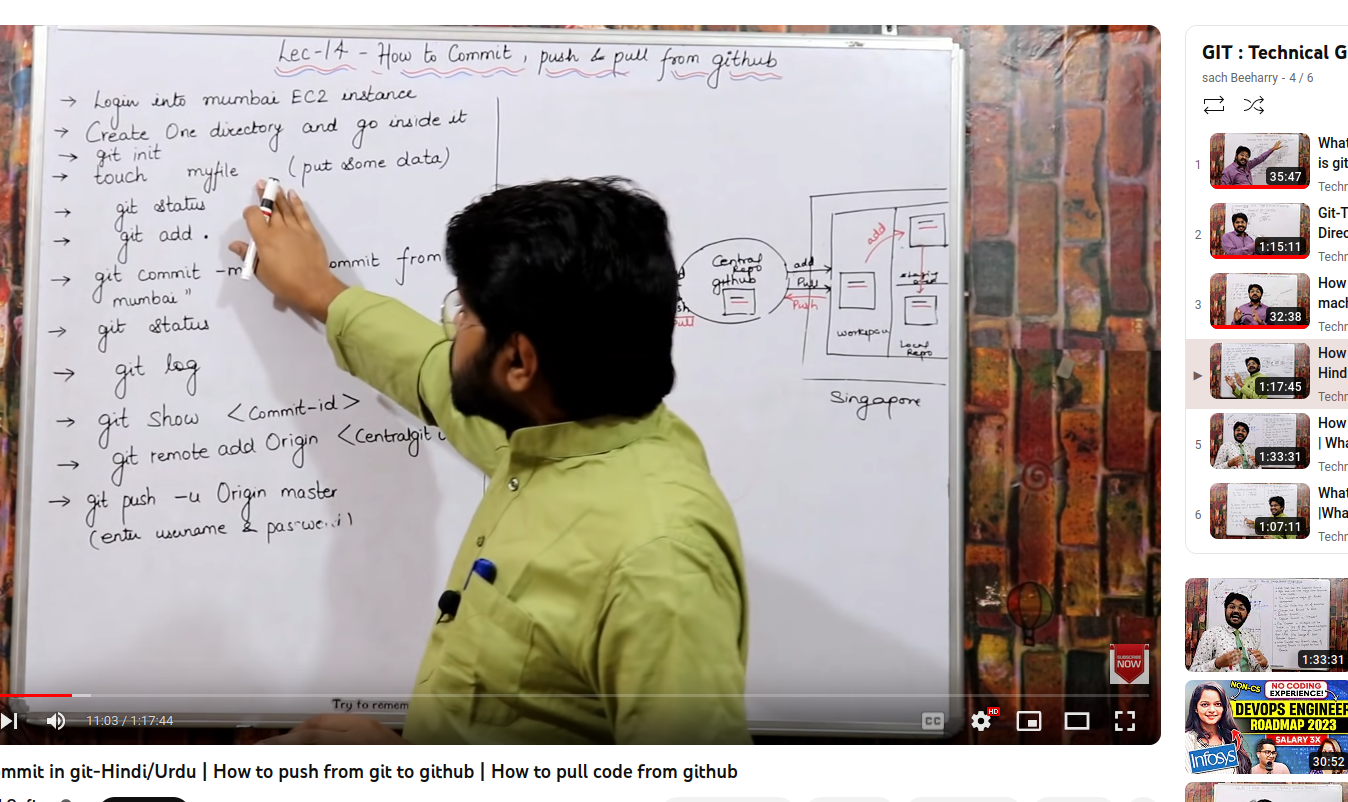 Lec-14 - How to Commit, push & pull from github
→ Login into mumbai EC2 instance
→ Create One directory and go inside it
→ git init
→ touch myfile (put some data)
→ git status
→ git add .
→ git commit -m ommit from
mumbai"
→ git status
→ git log
→ git Show <Commit-id>
→ git remote add Origin <Centralgit
→ git push -u Origin master
(enter username &
Central
Repo
github
add
Pull
Push
add
workspace
staging
area
Local
Repo
Singapore
Try to remem
SUBSCRIBE
NOW
11:03 / 1:17:44
CC
HD
ommit in git-Hindi/Urdu | How to push from git to github | How to pull code from github
GIT : Technical G
sach Beeharry - 4 / 6
1
35:47
What
is git
Techn
2
1:15:11
Git-T
Direc
Techn
3
32:38
How
mach
Techn
1:17:45
How
Hind
Techn
5
1:33:31
How
| Wha
Techn
6
1:07:11
What
|Wha
Techn
1:33:31
NON-CS
NO CODING
EXPERIENCE!
DEVOPS ENGINEER
ROADMAP 2023
SALARY 3X
Infosys
30:52